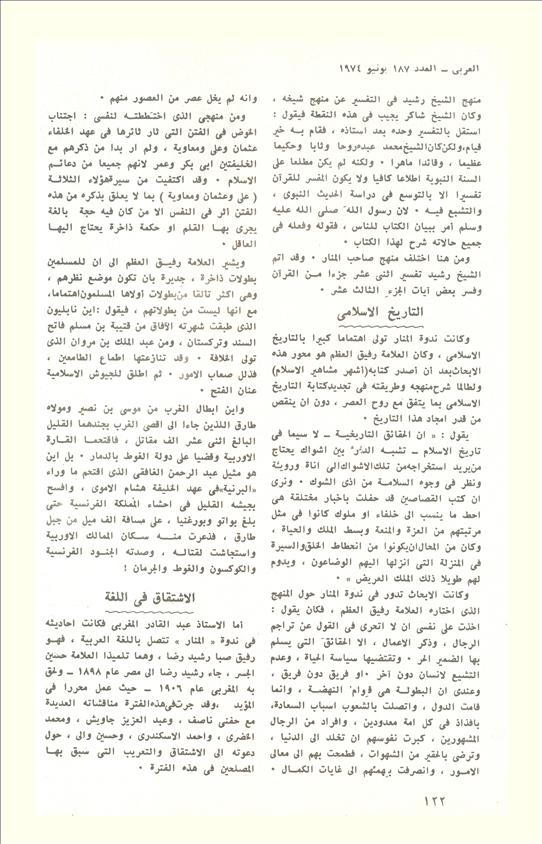 العربى – العدد ١٨٧ يونيو ١٩٧٤
منهج الشيخ رشيد فى التفسير عن منهج شيخه ،
وكان الشيخ شاكر يجيب فى هذه النقطة فيقول :
استقل بالتفسير وحده بعد استاذه ، فقام به خير
قيام،ولكن كان الشيخ محمد عبده روحا وثابا وحكيما
عظيما ، وقائدا ماهرا • ولكنه لم يكن مطلعا على
السنة النبوية اطلاعا كافيا ولا يكون المفسر للقرآن
تفسيرا الا بالتوسع فى دراسة الحديث النبوى ،
والتشبع فيه • لان رسول الله صلى الله عليه
وسلم أمر ببيان الكتاب للناس ، فقوله وفعله فى
جميع حالاته شرح لهذا الكتاب •
ومن هنا اختلف منهج صاحب المنار • وقد اتم
الشيخ رشيد تفسير اثنى عشر جزءا من القرآن
وفسر بعض آيات الجزء الثالث عشر •
التاريخ الاسلامى
وكانت ندوة المنار تولى اهتماما كبيرا بالتاريخ
الاسلامى ، وكان العلامة رفيق العظم هو محور هذه
الابحاث بعد أن أصدر كتابه (أشهر مشاهير الاسلام)
ولطالما شرح منهجه وطريقته فى تجديد كتابة التاريخ
الاسلامى بما يتفق مع روح العصر ، دون ان ينقص
من قدر امجاد هذا التاريخ •
يقول : « ان الحقائق التاريخية – لا سيما فى
تاريخ الاسلام – تشبه الدرّ بين اشواك يحتاج
من يريد استخراجه من تلك الاشواك الى اناة وروية
ونظر فى وجوه السلامة من اذى الشوك • ونرى
ان كتب القصاصين قد حفلت باخبار مختلقة هى
احط ما ينسب الى خلفاء او ملوك كانوا فى مثل
مرتبتهم من العزة والمنعة وبسط الملك والحياة ،
وكان من المحال ان يكونوا من انحطاط الخلق والسيرة
فى المنزلة التى انزلها اليهم الوضاعون ، ويدوم
لهم طويلا ذلك الملك العريض » •
وكانت الابحاث تدور فى ندوة المنار حول المنهج
الذى اختاره العلامة رفيق العظم ، فكان يقول :
اخذت على نفسى ان لا اتحرى فى القول عن تراجم
الرجال ، وذكر الاعمال ، الا الحقائق التى يسلم
بها الضمير الحر • وتقتضيها سياسة الحياة ، وعدم
التشيع لانسان دون آخر •او فريق دون فريق ،
وعندى ان البطولة هى قوام النهضة ، وانما
قامت الدول ، واتصلت بالشعوب اسباب السعادة،
بافذاذ فى كل امة معدودين ، وافراد من الرجال
المشهورين ، كبرت نفوسهم ان تخلد الى الدنيا ،
وترضى بالحقير من الشهوات ، فطمحت بهم الى معالى
الامور ، وانصرفت بهمتهم الى غايات الكمال •
وانه لم يخل عصر من العصور منهم •
ومن منهجى الذى اختططته لنفسى : اجتناب
الخوض فى الفتن التى ثار ثائرها فى عهد الخلفاء
عثمان وعلى ومعاوية ، ولم ار بدا من ذكرهم مع
الخليفتين ابى بكر وعمر لانهم جميعا من دعائم
الاسلام • وقد اكتفيت من سيرة هؤلاء الثلاثة
( على وعثمان ومعاوية ) بما لا يعلق بذكره من هذه
الفتن أثر فى النفس الا من كان فيه حجة بالغة
يجرى بها القلم او حكمة ذاخرة يحتاج اليها
العاقل •
ويشير العلامة رفيق العظم الى ان للمسلمين
بطولات ذاخرة ، جديرة بان تكون موضع نظرهم ،
وهى اكثر تالقا من بطولات أولاها المسلمون اهتماما،
مع انها ليست من بطولاتهم ، فيقول :اين نابليون
الذى طبقت شهرته الآفاق من قتيبة بن مسلم فاتح
السند وتركستان ، ومن عبد الملك بن مروان الذى
تولى الخلافة • وقد تنازعتها اطماع الطامعين ،
فذلل صعاب الامور • ثم اطلق للجيوش الاسلامية
عنان الفتح •
واين ابطال الغرب من موسى بن نصير ومولاه
طارق اللذين جاءا الى اقصى الغرب بجندهما القليل
البالغ اثنى عشر الف مقاتل ، فاقتحما القارة
الاوربية وقضيا على دولة القوط بالدمار • بل اين
هو مثيل عبد الرحمن الغافقى الذى اقتحم ما وراء
«البرنية»فى عهد الخليفة هشام الاموى ، وافسح
بجيشه القليل فى احشاء المملكة الفرنسية حتى
بلغ بواتو وبورغنيا ، على مسافة الف ميل من جبل
طارق ، فذعرت منه سكان الممالك الاوربية
واستجاشت لقتاله ، وصدته الجنود الفرنسية
والوكسون والقوط والجرمان !
الاشتقاق فى اللغة
أما الاستاذ عبد القادر المغربى فكانت احاديثه
فى ندوة « المنار » تتصل باللغة العربية ، فهو
رفيق صبا رشيد رضا ، وهما تلميذا العلامة حسين
الجسر ، جاء رشيد رضا الى مصر عام ١٨٩٨ – ولحق
به المغربى عام ١٩٠٦ – حيث عمل محررا فى
المؤيد ،وقد جرت فى هذه الفترة مناقشاته العديدة
مع حفنى ناصف ، وعبد العزيز جاويش ، ومحمد
الخضرى ، واحمد الاسكندرى ، وحسين والى ، حول
دعوته الى الاشتقاق والتعريب التى سبق بها
المصلحين فى هذه الفترة •
١٢٢